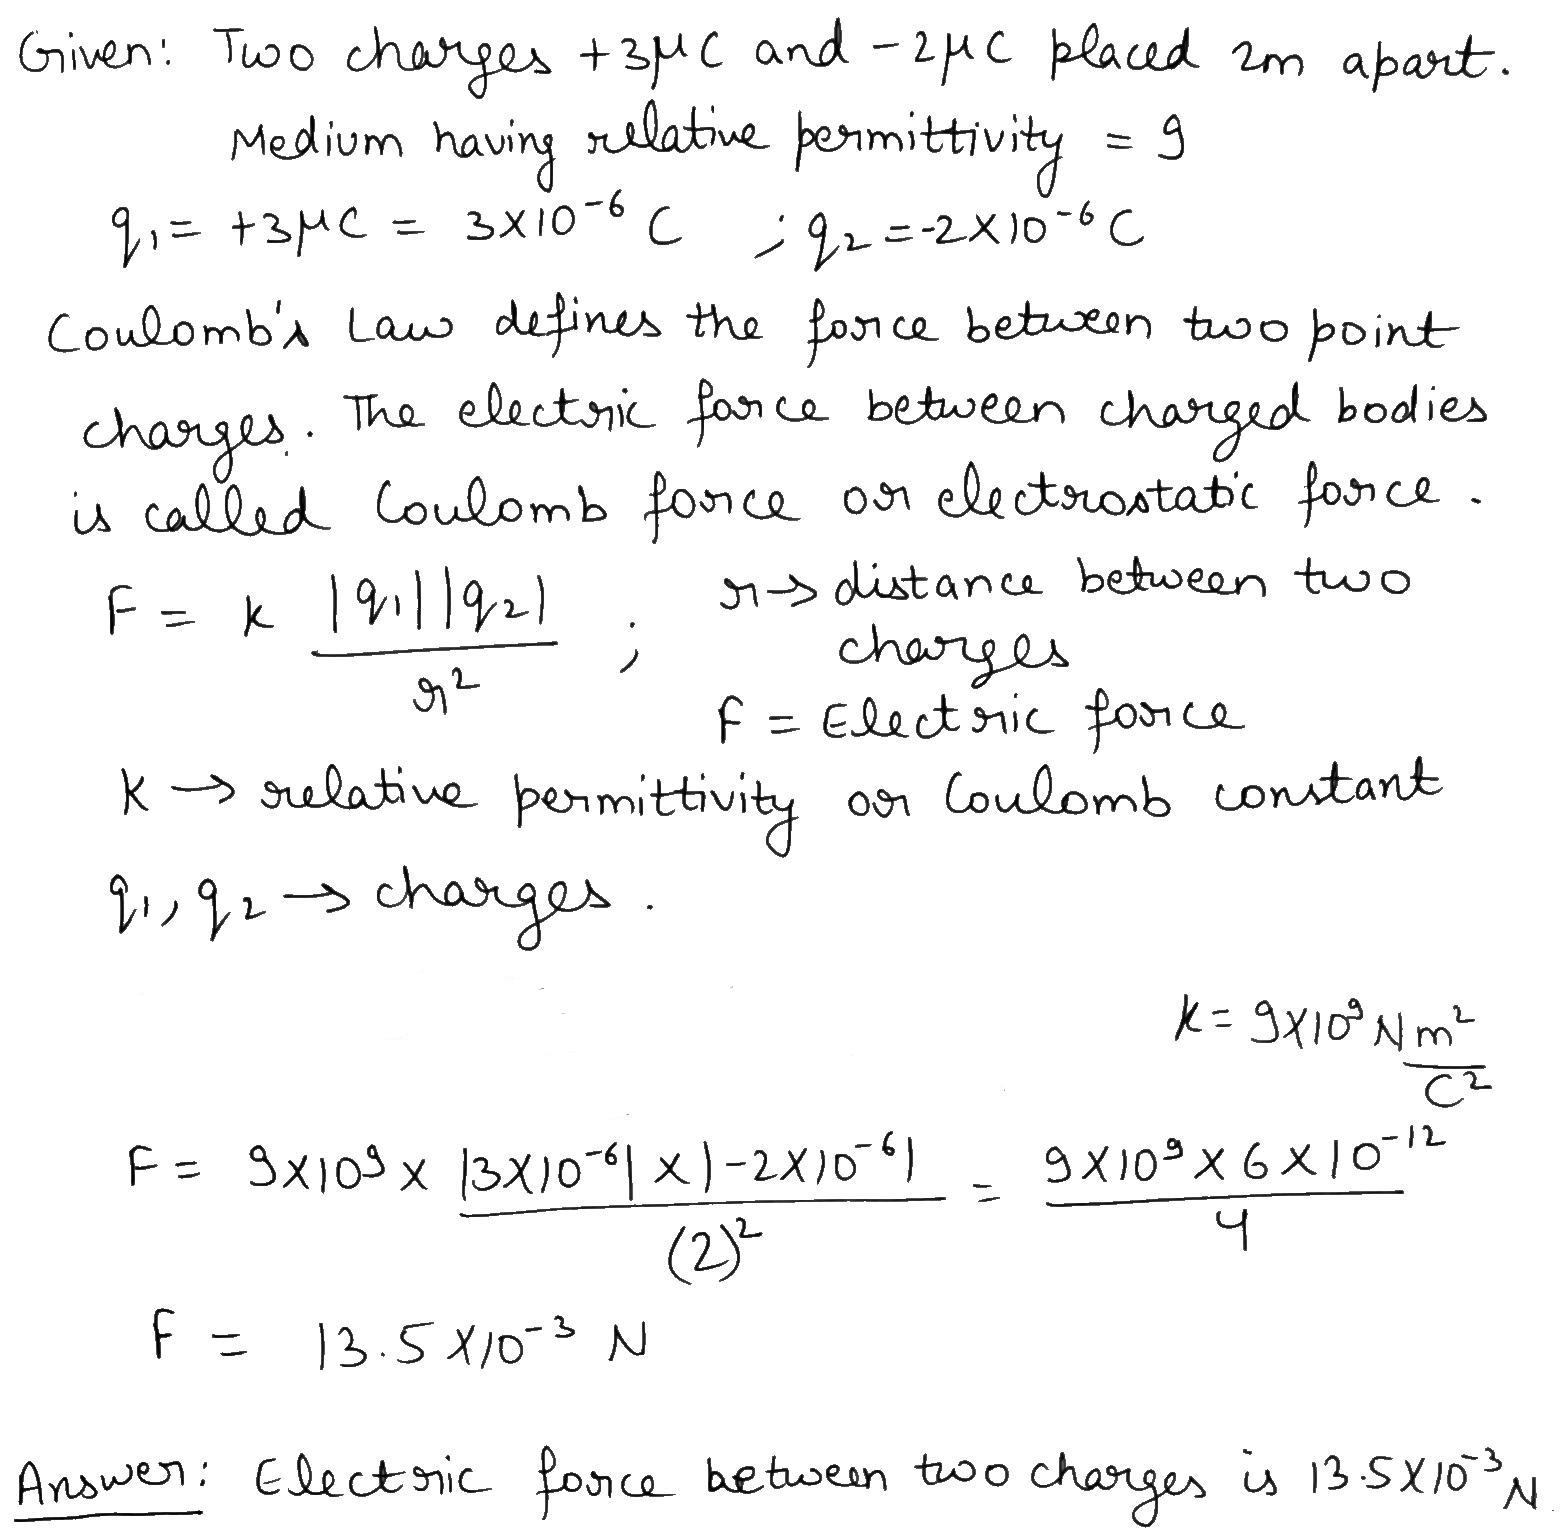 Given: Two charges +3μC and -2μC placed 2m apart.
Medium having relative permittivity = 9
q₁ = +3μC = 3×10⁻⁶ C ; q₂ = -2×10⁻⁶ C
Coulomb's Law defines the force between two point
charges. The electric force between charged bodies
is called Coulomb force or electrostatic force.
F = k |q₁||q₂| / r² ; r → distance between two
charges
F = Electric force
K → relative permittivity or Coulomb constant
q₁, q₂ → charges.
K = 9×10⁹ N m²/C²
F = 9×10⁹ × |3×10⁻⁶| × |-2×10⁻⁶| / (2)² = 9×10⁹ × 6×10⁻¹² / 4
F = 13.5×10⁻³ N
Answer: Electric force between two charges is 13.5×10⁻³ N